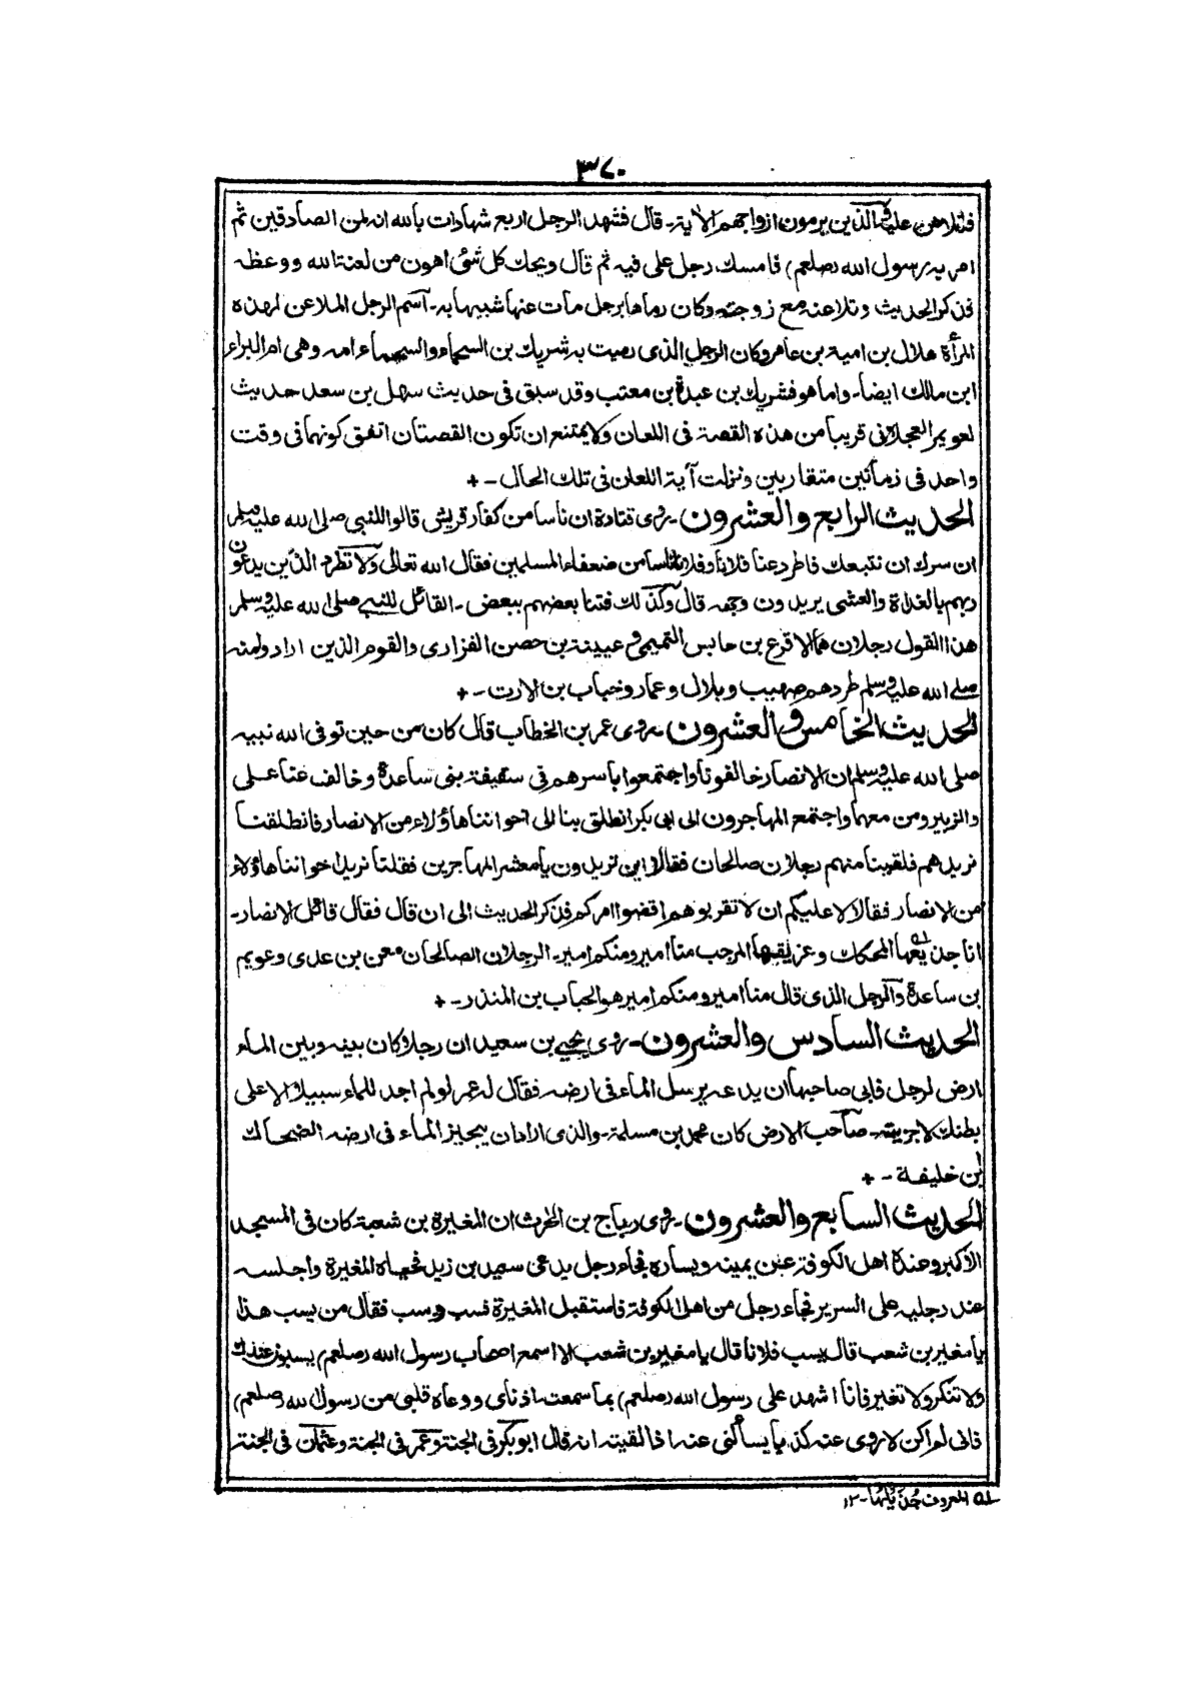 ٣٧٠
فتلاهن عليه والذين يرمون ازواجهم الاية۔ قال فشهد الرجل اربع شهادات بالله انه لمن الصادقين ثم
امر به رسول الله (صلعم) فامسك رجل على فيه ثم قال ويحك كل شئ اهون من لعنة الله ووعظه
فذكر الحديث وتلاعنه مع زوجته وكان رماها برجل مات عنها شبيها به۔ آسم الرجل الملاعن لهذه
المرأة هلال بن امية بن عامر وكان الرجل الذى رميت به شريك بن السحماء والسحماء امه وهى ام البراء
ابن مالك ايضا۔ واما هو فشريك بن عبدة بن معتب وقد سبق فى حديث سهل بن سعد حديث
لعويمر العجلانى قريبا من هذه القصة فى اللعان ولا يمتنع ان تكون القصتان اتفق كونهما فى وقت
واحد فى زمانين متقاربين ونزلت آية اللعان فى تلك الحال۔ +
الحديث الرابع والعشرون۔ روى قتادة ان ناسا من كفار قريش قالوا للنبى صلى الله عليه وسلم
ان سرك ان نتبعك فاطرد عنا فلانا وفلانا ناسا من ضعفاء المسلمين فقال الله تعالى ولا تطرد الذين يدعون
ربهم بالغداة والعشى يريدون وجهه قال وكذلك فتنا بعضهم ببعض۔ القائل للنبي صلى الله عليه وسلم
هذا القول رجلان هما الاقرع بن حابس التميمى وعيينة بن حصن الفزارى والقوم الذين ارادوا منه
صلے الله عليه وسلم طردهم صهيب وبلال وعمار وخباب بن الارت۔ +
الحديث الخامس والعشرون۔ روى عمر بن الخطاب قال كان من حين توفى الله نبيه
صلى الله عليه وسلم ان الانصار خالفونا واجتمعوا باسرهم فى سقيفة بنى ساعدة وخالف عنا على
والزبير ومن معهما واجتمع المهاجرون الى ابى بكر انطلق بنا الى اخواننا هاؤلاء من الانصار فانطلقنا
نريدهم فلقينا منهم رجلان صالحان فقالا اين تريدون يا معشر المهاجرين فقلنا نريد اخواننا هاؤلاء
من الانصار فقالا لا عليكم ان لا تقربوهم اقضوا امركم فذكر الحديث الى ان قال فقال قائل الانصار۔
انا جذيعها المحكك وعزيقبها المرجب منا امير ومنكم امير۔ الرجلان الصالحان معن بن عدى وعويم
بن ساعدة والرجل الذى قال منا امير ومنكم امير هو الحباب بن المنذر۔ +
الحديث السادس والعشرون۔ روى يحيے بن سعيد ان رجلا وكان بينه وبين الماء
ارض لرجل فابى صاحبها ان يدعه يرسل الماء فى ارضه فقال له عمر لو لم اجد للماء سبيلا الا على
بطنك لاجريته۔ صاحب الارض كان محمد بن مسلمة۔ والذى اراد ان يجيز الماء فى ارضه الضحاك
ابن خليفة۔ +
الحديث السابع والعشرون۔ روى رياح بن الحرث ان المغيرة بن شعبة كان فى المسجد
الاكبر وعنده اهل الكوفة عن يمينه ويساره فجاء رجل يدعى سعيد بن زيد فحياه المغيرة واجلسه
عند رجليه على السرير فجاء رجل من اهل الكوفة فاستقبل المغيرة فسب وسب فقال من يسب هذا
يا مغير بن شعب قال يسب فلانا قال يا مغير بن شعب الا اسمع اصحاب رسول الله (صلعم) يسبون عندك
ولا تنكر ولا تغير فانا اشهد على رسول الله (صلعم) بما سمعت اذناى ووعاه قلبى من رسول الله (صلعم)
فانى لم اكن لاروى عنه كذبا يسألنى عنه اذا لقيته انه قال ابو بكر فى الجنة وعمر فى الجنة وعثمان فى الجنة
له المعروف جُذَيْلُهَا۔ ۱۲